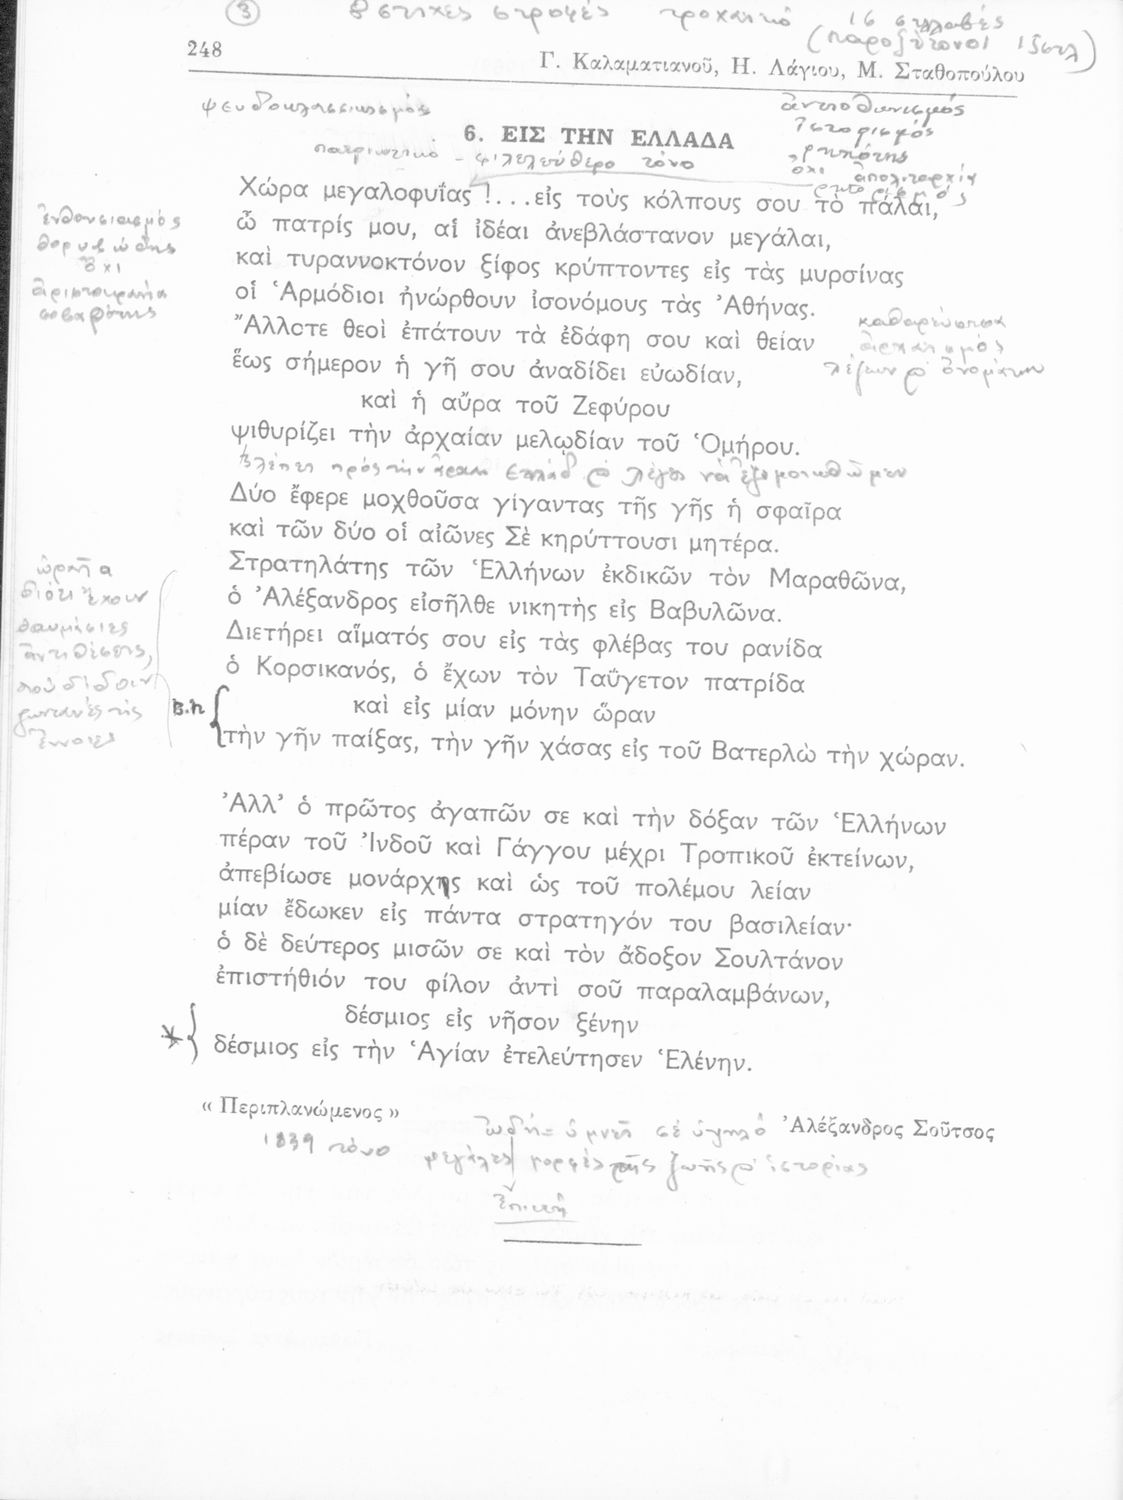 ③ 8 στιχες στροφές τροχαϊκό 16 συλλαβές
(παροξύτονοι 15συλ)
248
Γ. Καλαματιανοῦ, Η. Λάγιου, Μ. Σταθοπούλου
ψευδοκλασσικισμός
6. ΕΙΣ ΤΗΝ ΕΛΛΑΔΑ
ἱστορισμός
ρητορισμός
πατριωτικό - φιλελεύθερο τόνο
Χώρα μεγαλοφυΐας !...εἰς τοὺς κόλπους σου τὸ πάλαι,
ὦ πατρίς μου, αἱ ἰδέαι ἀνεβλάστανον μεγάλαι,
καὶ τυραννοκτόνον ξίφος κρύπτοντες εἰς τὰς μυρσίνας
οἱ Ἁρμόδιοι ἠνώρθουν ἰσονόμους τὰς Ἀθήνας.
Ἄλλοτε θεοὶ ἐπάτουν τὰ ἐδάφη σου καὶ θείαν
ἕως σήμερον ἡ γῆ σου ἀναδίδει εὐωδίαν,
καὶ ἡ αὔρα τοῦ Ζεφύρου
ψιθυρίζει τὴν ἀρχαίαν μελῳδίαν τοῦ Ὁμήρου.
ἐνθουσιασμός
θορυβώδης
ὄχι
ἀριστοκρατία
σοβαρότης
καθαρεύουσα
ἀρχαϊσμός
λέξεων ὀνομάτων
Βλέπει πρὸς τὴν ἀρχαία Ἑλλάδ
Δύο ἔφερε μοχθοῦσα γίγαντας τῆς γῆς ἡ σφαῖρα
καὶ τῶν δύο οἱ αἰῶνες Σὲ κηρύττουσι μητέρα.
Στρατηλάτης τῶν Ἑλλήνων ἐκδικῶν τὸν Μαραθῶνα,
ὁ Ἀλέξανδρος εἰσῆλθε νικητὴς εἰς Βαβυλῶνα.
Διετήρει αἵματός σου εἰς τὰς φλέβας του ρανίδα
ὁ Κορσικανός, ὁ ἔχων τὸν Ταΰγετον πατρίδα
καὶ εἰς μίαν μόνην ὥραν
τὴν γῆν παίξας, τὴν γῆν χάσας εἰς τοῦ Βατερλὼ τὴν χώραν.
ὡραῖα
διότι ἔχουν
θαυμάσιες
ἀντιθέσεις,
πού δίδουν
ζωντανές τίς
ἔννοιες
Ἀλλ' ὁ πρῶτος ἀγαπῶν σε καὶ τὴν δόξαν τῶν Ἑλλήνων
πέραν τοῦ Ἰνδοῦ καὶ Γάγγου μέχρι Τροπικοῦ ἐκτείνων,
ἀπεβίωσε μονάρχης καὶ ὡς τοῦ πολέμου λείαν
μίαν ἔδωκεν εἰς πάντα στρατηγόν του βασιλείαν·
ὁ δὲ δεύτερος μισῶν σε καὶ τὸν ἄδοξον Σουλτάνον
ἐπιστήθιόν του φίλον ἀντὶ σοῦ παραλαμβάνων,
δέσμιος εἰς νῆσον ξένην
δέσμιος εἰς τὴν Ἁγίαν ἐτελεύτησεν Ἑλένην.
« Περιπλανώμενος »
Ἀλέξανδρος Σοῦτσος
1839
ὠδή = ὑμνεῖ σέ ὑψηλό
τόνο μεγάλες μορφές τῆς ζωῆς ἱστορίας
ἐπική